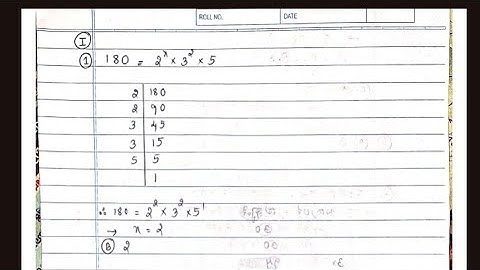 ROLL NO. DATE
I
1 180 = 2ⁿ × 3² × 5
2 | 180
2 | 90
3 | 45
3 | 15
5 | 5
| 1
∴ 180 = 2² × 3² × 5¹
→ n = 2
B 2